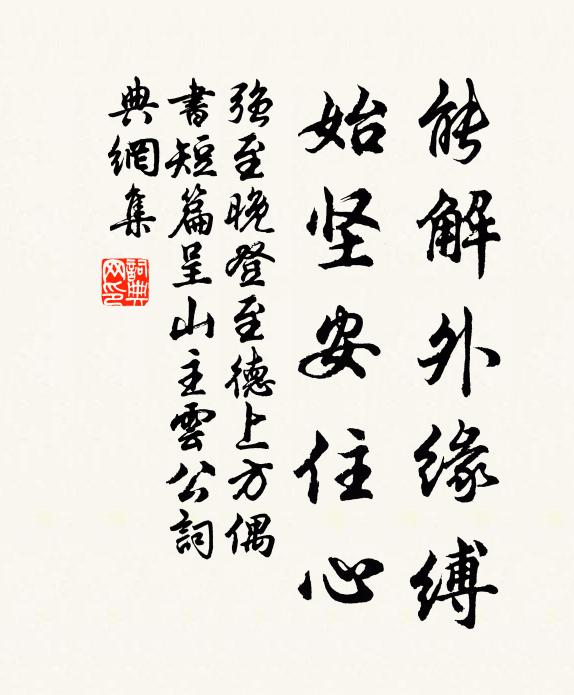 能解外缘缚
始坚安住心
强至晚登至德上方偶
書短篇呈山主雲公詞
典網集
詞典网印